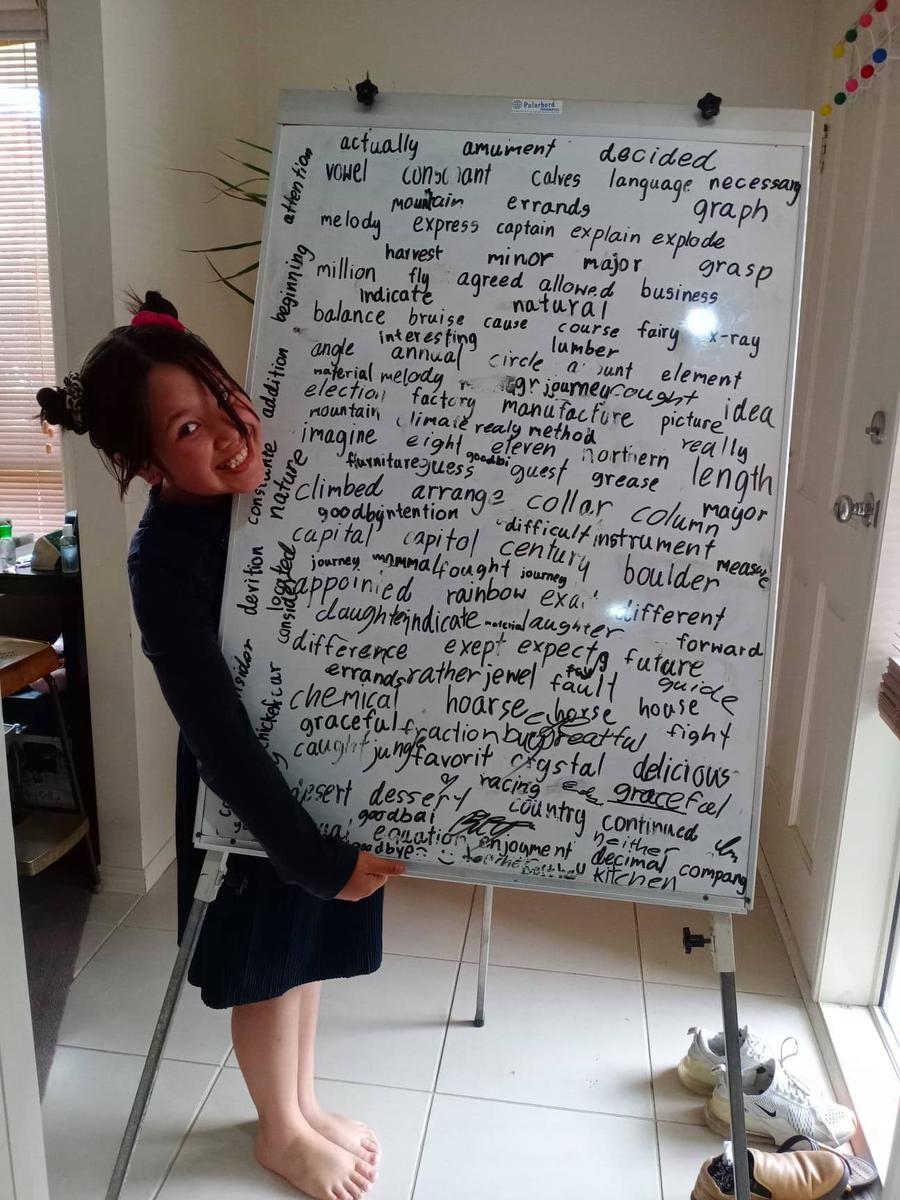 Polarbord
actually amument decided
vowel calves language necessary
mountain errands graph
melody express captain explain explode
harvest minor major grasp
million fly agreed allowed business
indicate natural
balance bruise cause course fairy x-ray
interesting lumber
angle annual circle element
material melody journey cought idea
election factory manufacture picture
mountain climate realy method really
imagine eight eleven northern length
flurniture guess goodbi guest grease
climbed arrange collar column mayor
goodby intention difficult instrument
capital capitol century measure
journey mammal fought journey boulder
appoinied rainbow different
daughter indicate material aughter forward
difference exept expect future
errands rather jewel fault guide
chemical hoarse horse house
graceful fraction fight
caught jungle favorit crystal delicious
racing graceful
desert dessert country continued
goodbai neither
equation enjoument decimal company
goodbye kitchen
attention
beginning
addition
nature
devition located
considered